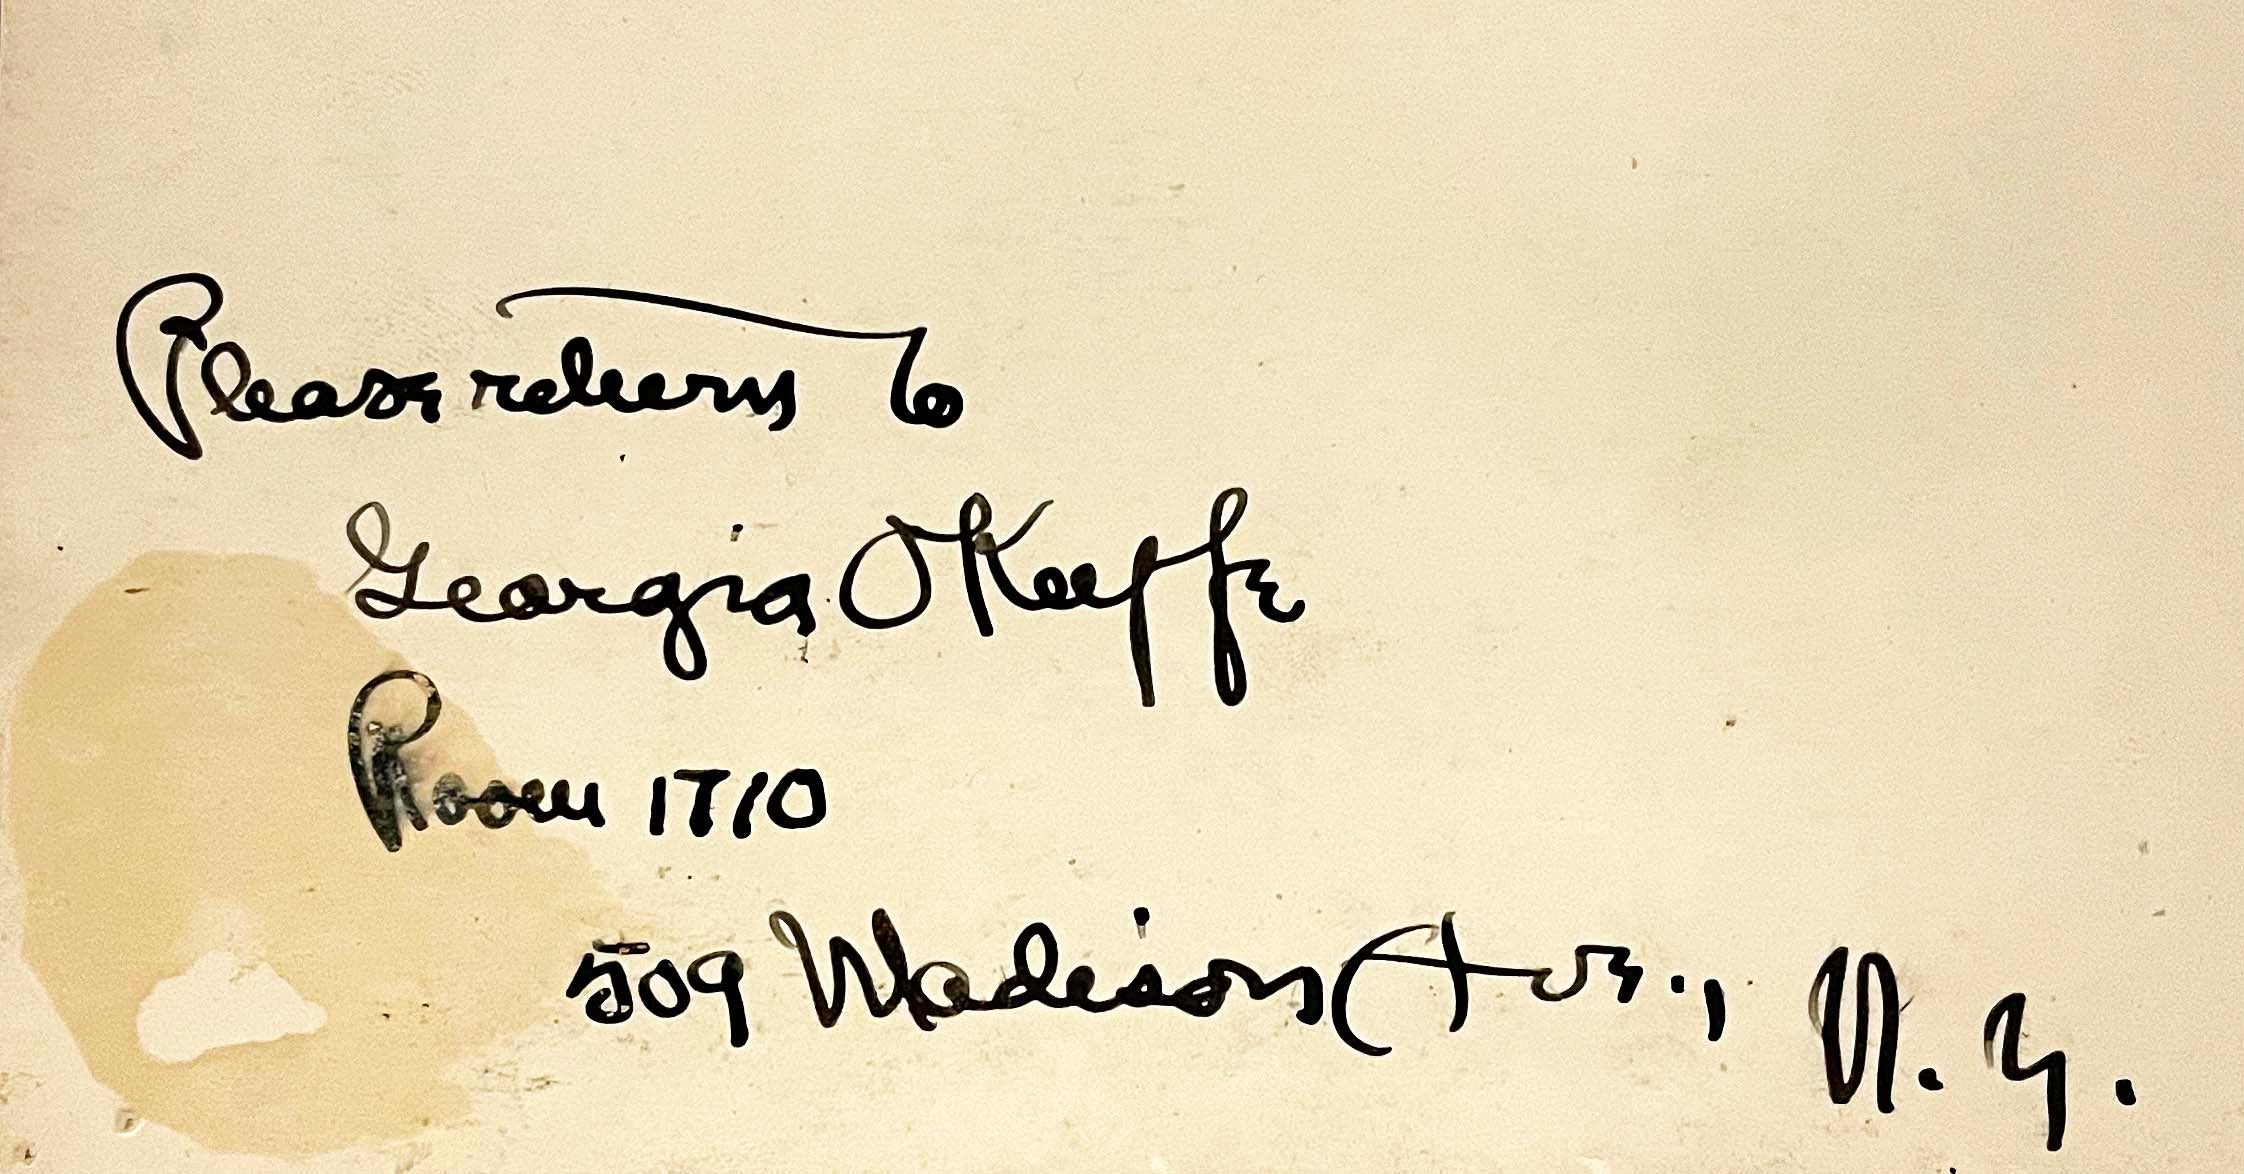 Please return to
Georgia OKeeffe
Room 1710
509 Madison Ave., N.Y.